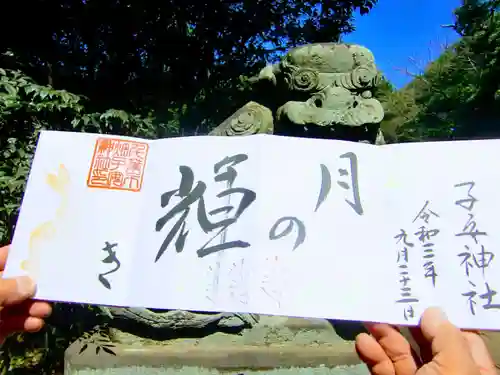 子安神社
令和三年
九月二十三日
月の輝き